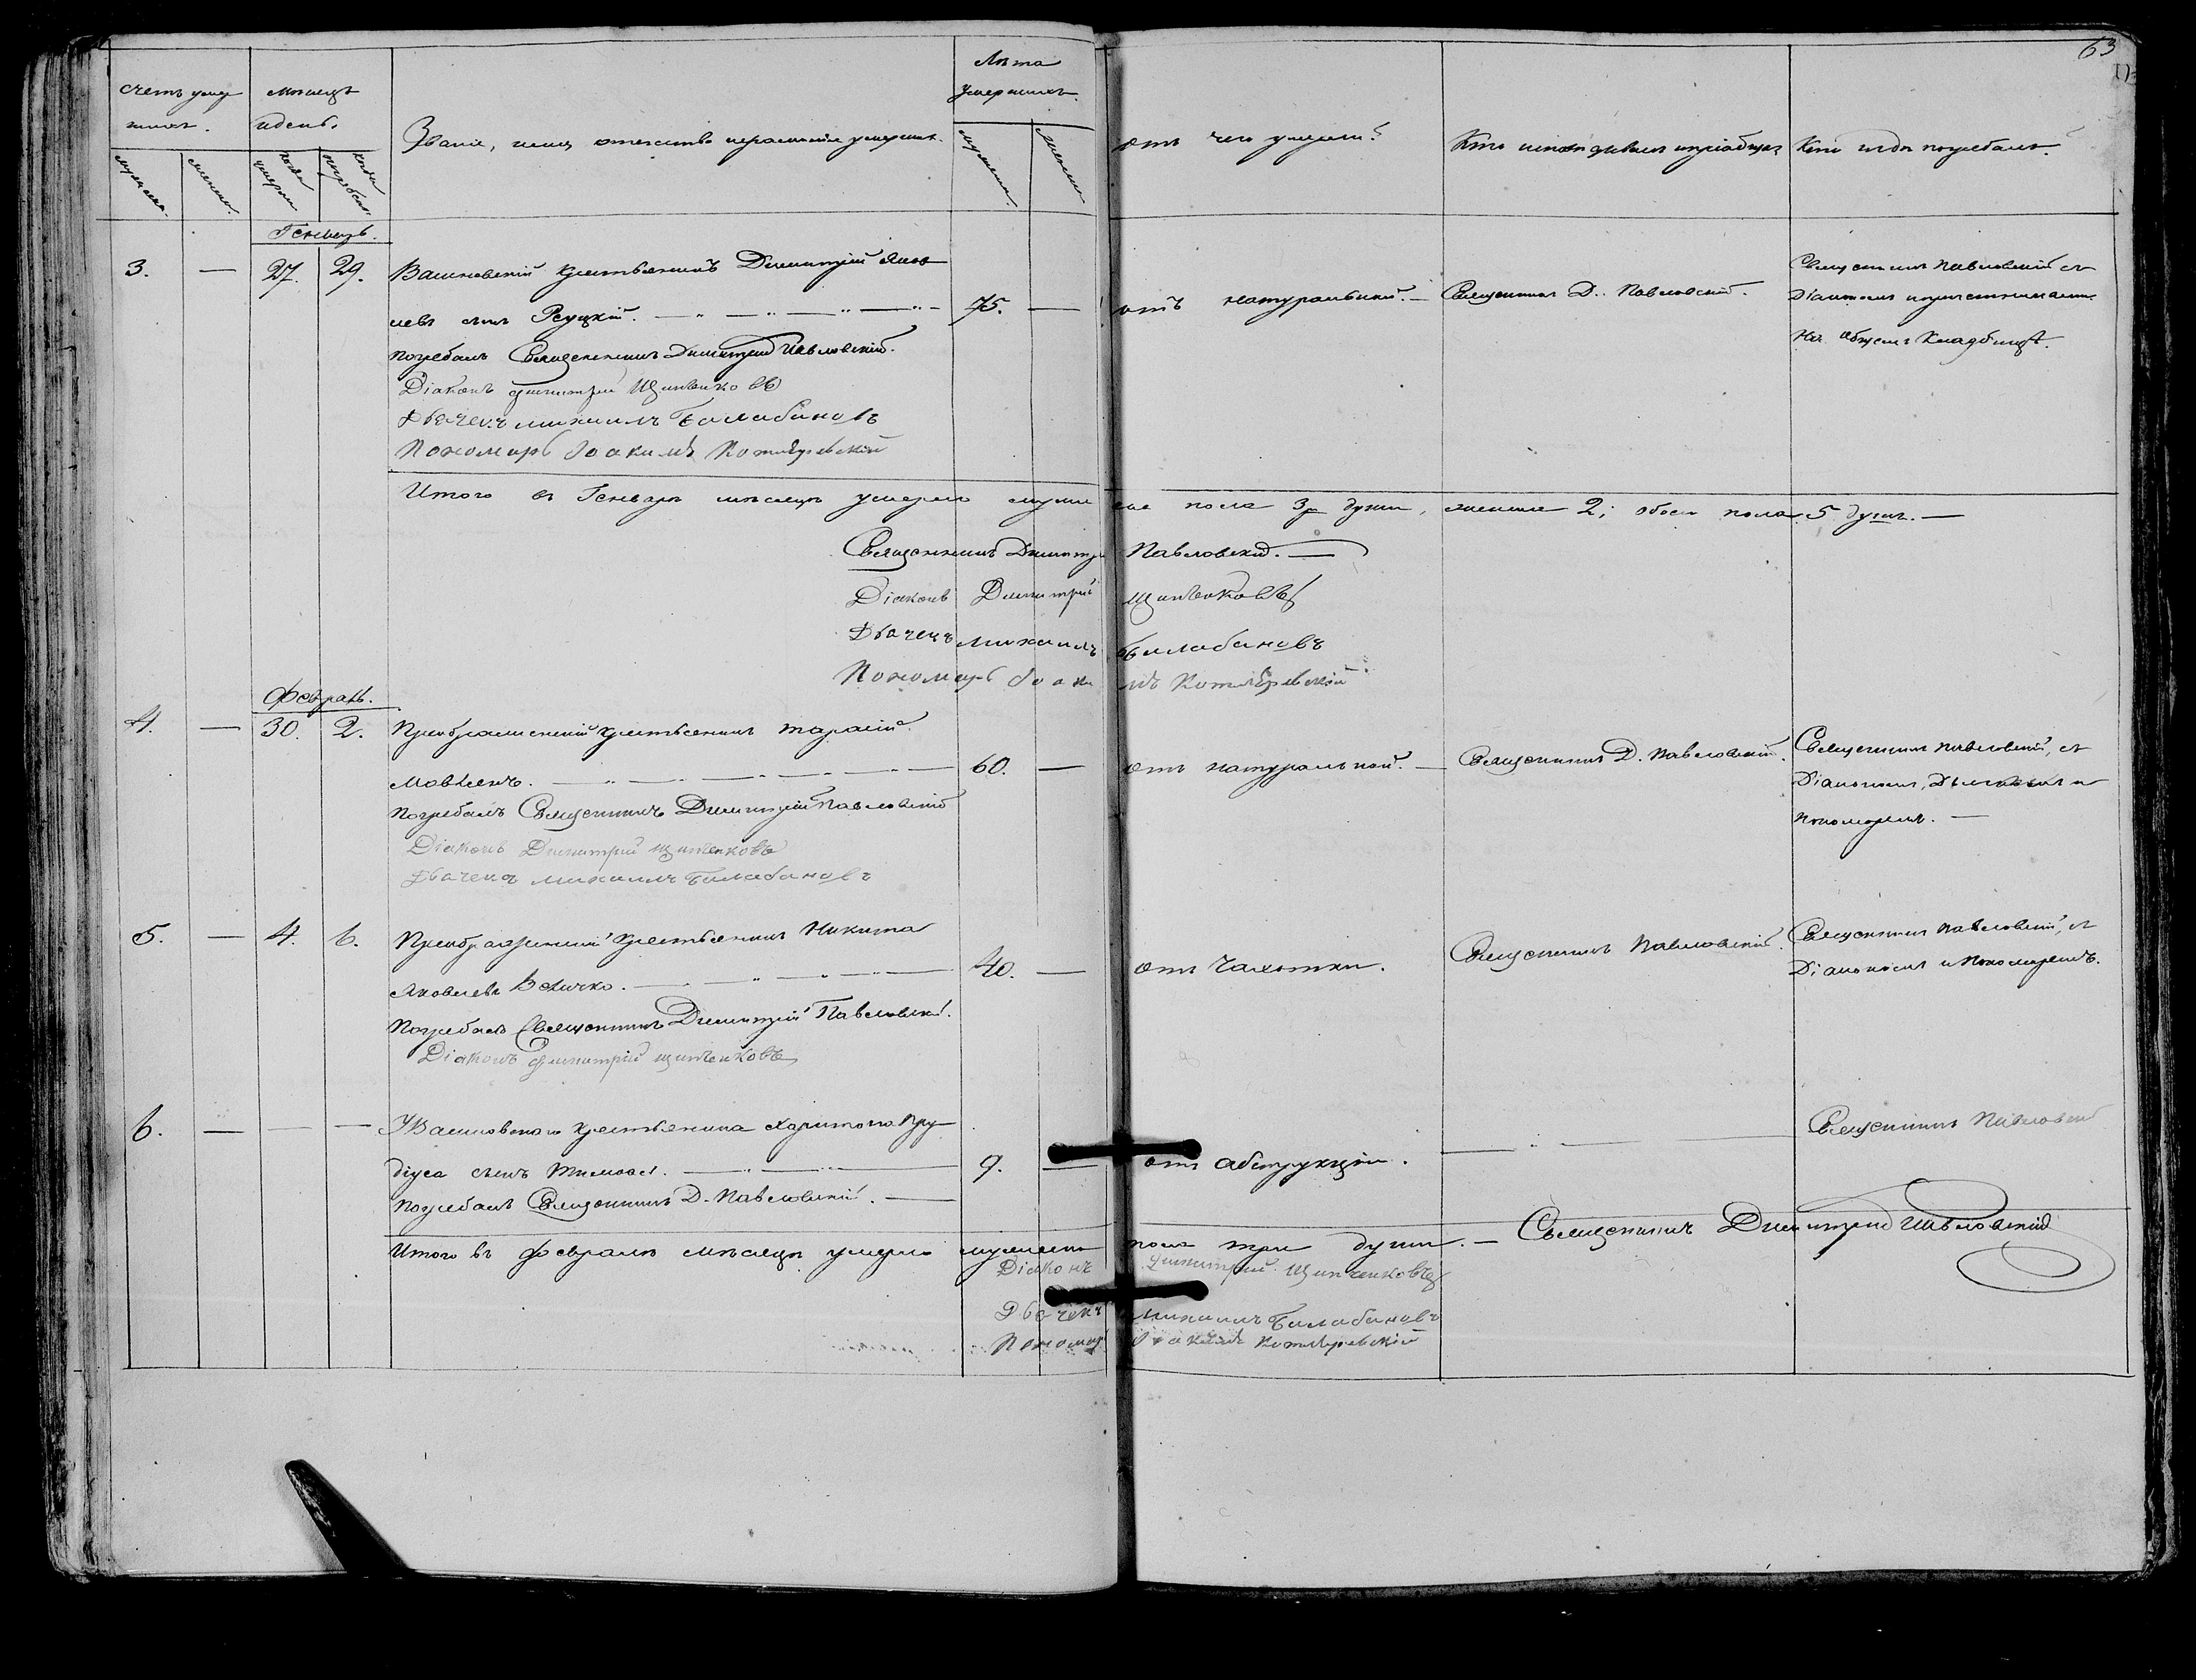 63
Счетъ умер
шихъ.
мужеска.
женска.
Мѣсяцъ
и день.
когда умерли
когда погребены.
Званіе, имя, отечество и фамилія умершихъ.
Лѣта
умершихъ.
мужеска.
женска.
отъ чего умерли?
Кто исповѣдывалъ и пріобщалъ
Кто и гдѣ погребалъ?
Генварь.
3. — 27. 29. крестьянинъ Димитрій Яков
левъ сынъ Реуцкій. — 75. — отъ натуральной. — Священникъ Д. Павловскій.
Священникъ Павловскій съ
Діакономъ
На общемъ кладбищѣ.
погребалъ Священникъ Димитрій Павловскій.
Діаконъ Димитрій Щитенковъ
Дьячекъ Михаилъ Балабановъ
Пономарь Іоакимъ Котляревскій
Итого въ Генварѣ мѣсяцѣ умерло мужеска пола 3 души, женска 2; обоего пола 5 душъ. —
Священникъ Димитрій Павловскій. —
Діаконъ Димитрій Щитенковъ
Дьячекъ Михаилъ Балабановъ
Пономарь Іоакимъ Котляревскій
Февраль.
4. — 30. 2. Преображенскій крестьянинъ Тарасій
60. — отъ натуральной. — Священникъ Д. Павловскій.
Священникъ Павловскій, съ
Діакономъ, Дьячкомъ и
Пономаремъ. —
Погребалъ Священникъ Димитрій Павловскій
Діаконъ Димитрій Щитенковъ
Дьячекъ Михаилъ Балабановъ
5. — 4. 6. Преображенскій крестьянинъ Никита
Яковлевъ Величко. — 40. — отъ чахотки. Священникъ Павловскій.
Священникъ Павловскій, съ
Діакономъ и Пономаремъ.
Погребалъ Священникъ Димитрій Павловскій.
Діаконъ Димитрій Щитенковъ
6. — — — крестьянина Харитона Пру
діуса сынъ — 9. — отъ абструкціи. —
Священникъ Павловскій
Погребалъ Священникъ Д. Павловскій. —
Итого въ Февралѣ мѣсяцѣ умерло мужеска пола три души. — Священникъ Димитрій Павловскій
Діаконъ Димитрій Щитенковъ
Дьячекъ Михаилъ Балабановъ
Пономарь Іоакимъ Котляревскій